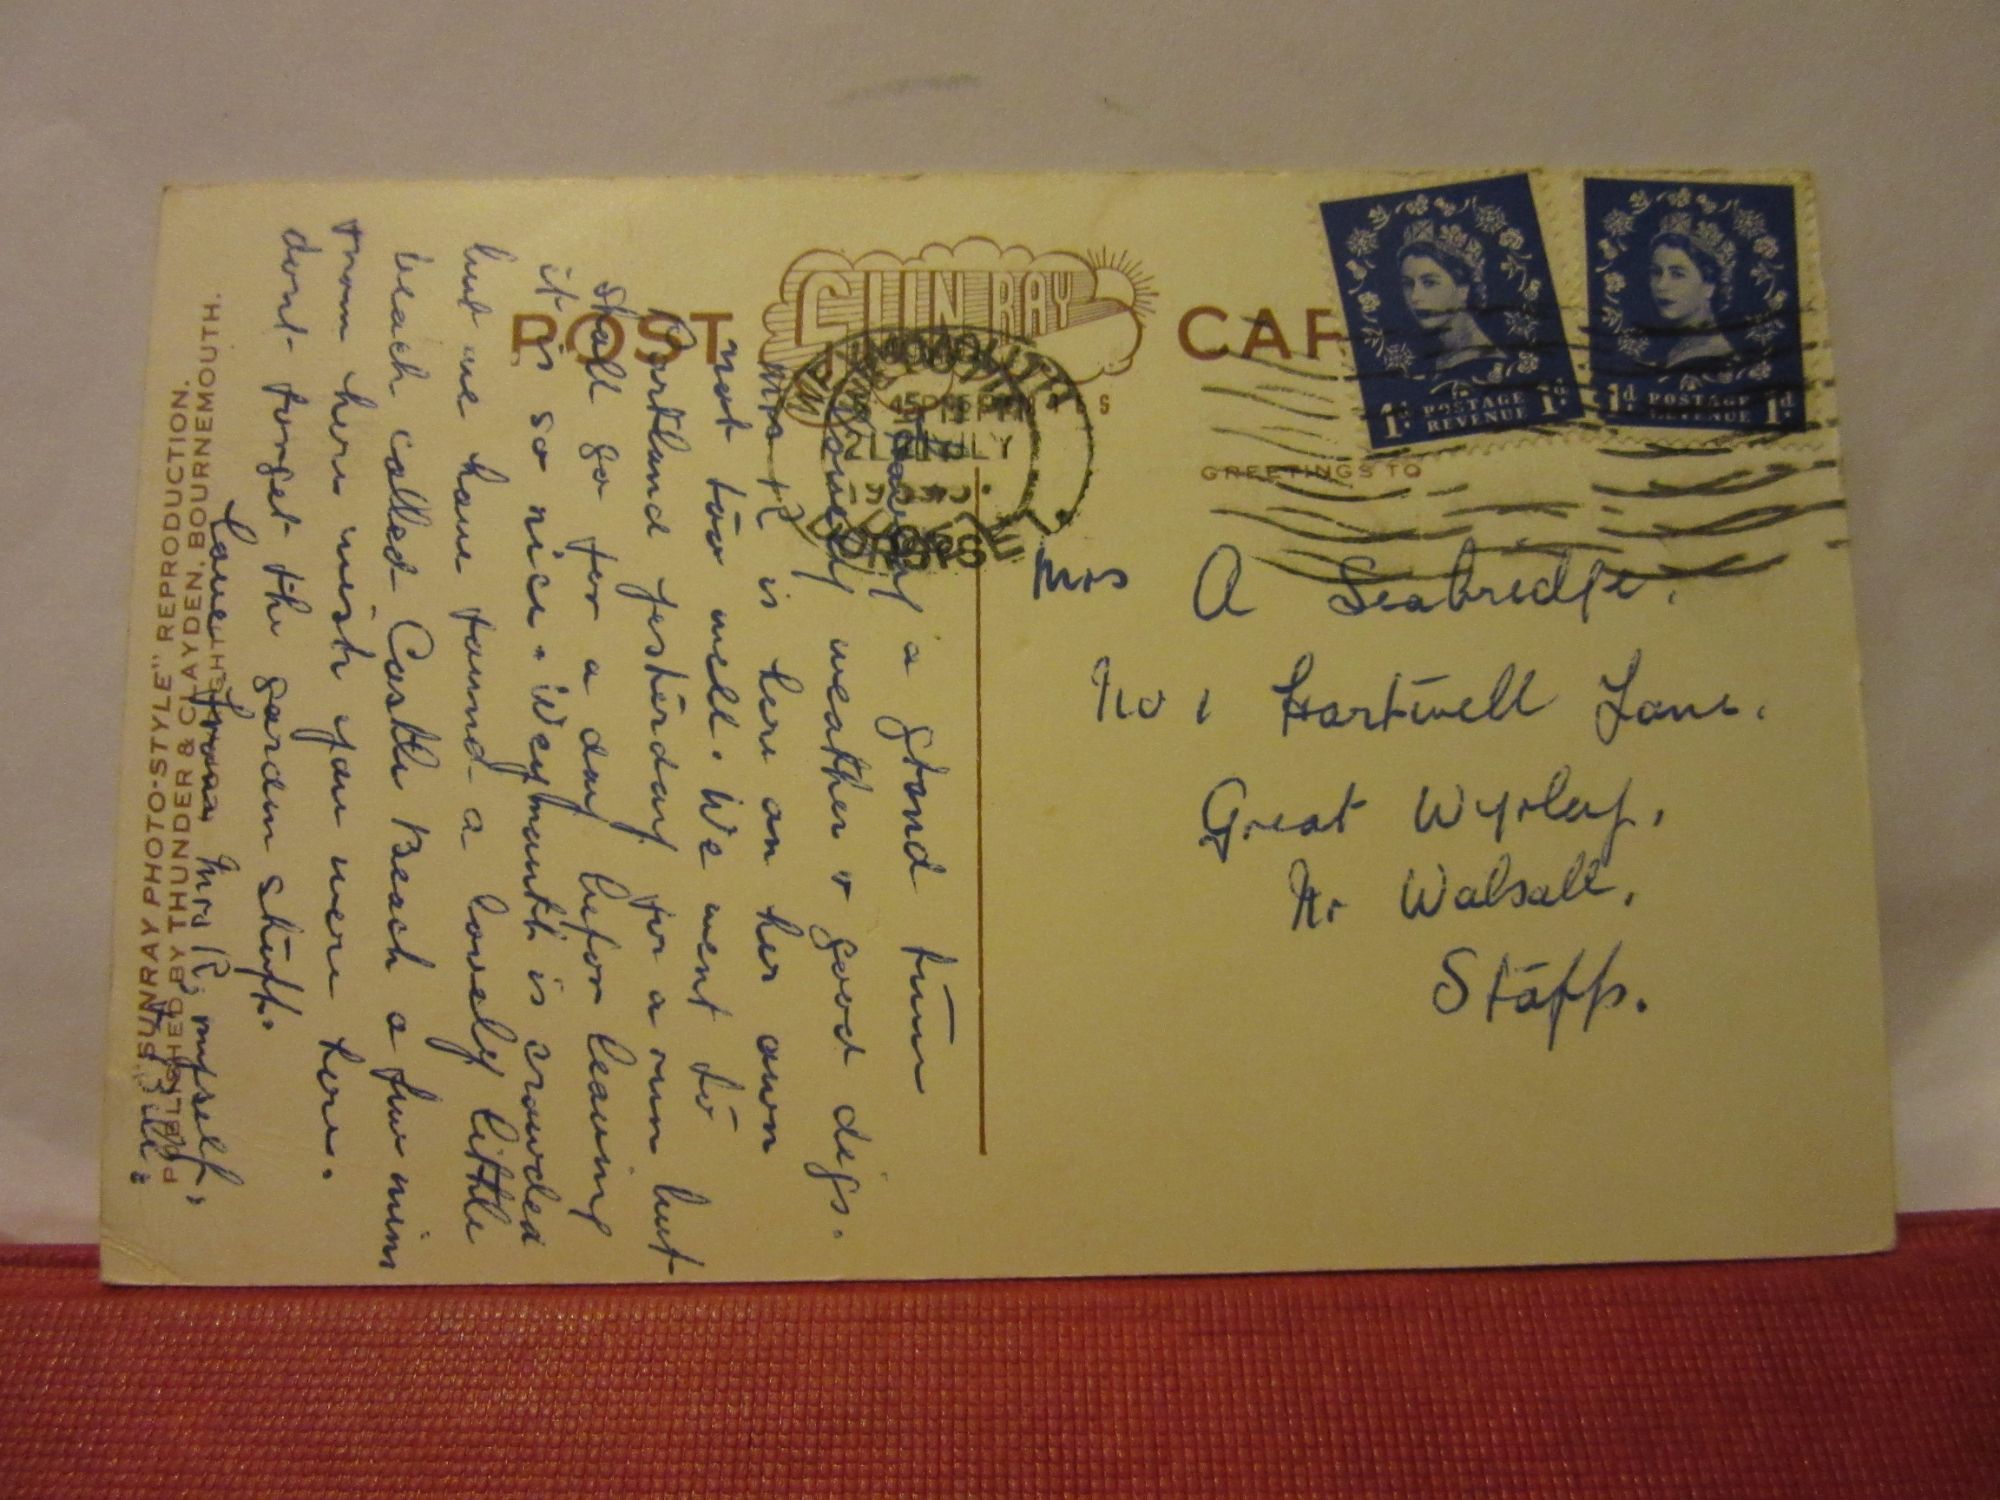 POST
SUN RAY
CAR
WEYMOUTH
2 JULY
DORSET
1d. POSTAGE REVENUE 1d.
1d. POSTAGE REVENUE 1d.
GREETINGS TO
Mrs A Seabridge.
No 1 Hartwell Lane.
Great Wyrley,
Nr Walsall,
Staffs.
Having a grand time
lovely weather & good digs.
is here on her own
not too well. We went to
Portland yesterday for a run but
shall go for a day before leaving
it is so nice. Weymouth is crowded
but we have found a lovely little
beach called Castle Beach a few mins
from here wish you were here.
dont forget the garden stuff.
Love from Mr R, myself,
& Bill.
"SUNRAY PHOTO-STYLE" REPRODUCTION.
PUBLISHED BY THUNDER & CLAYDEN, BOURNEMOUTH.